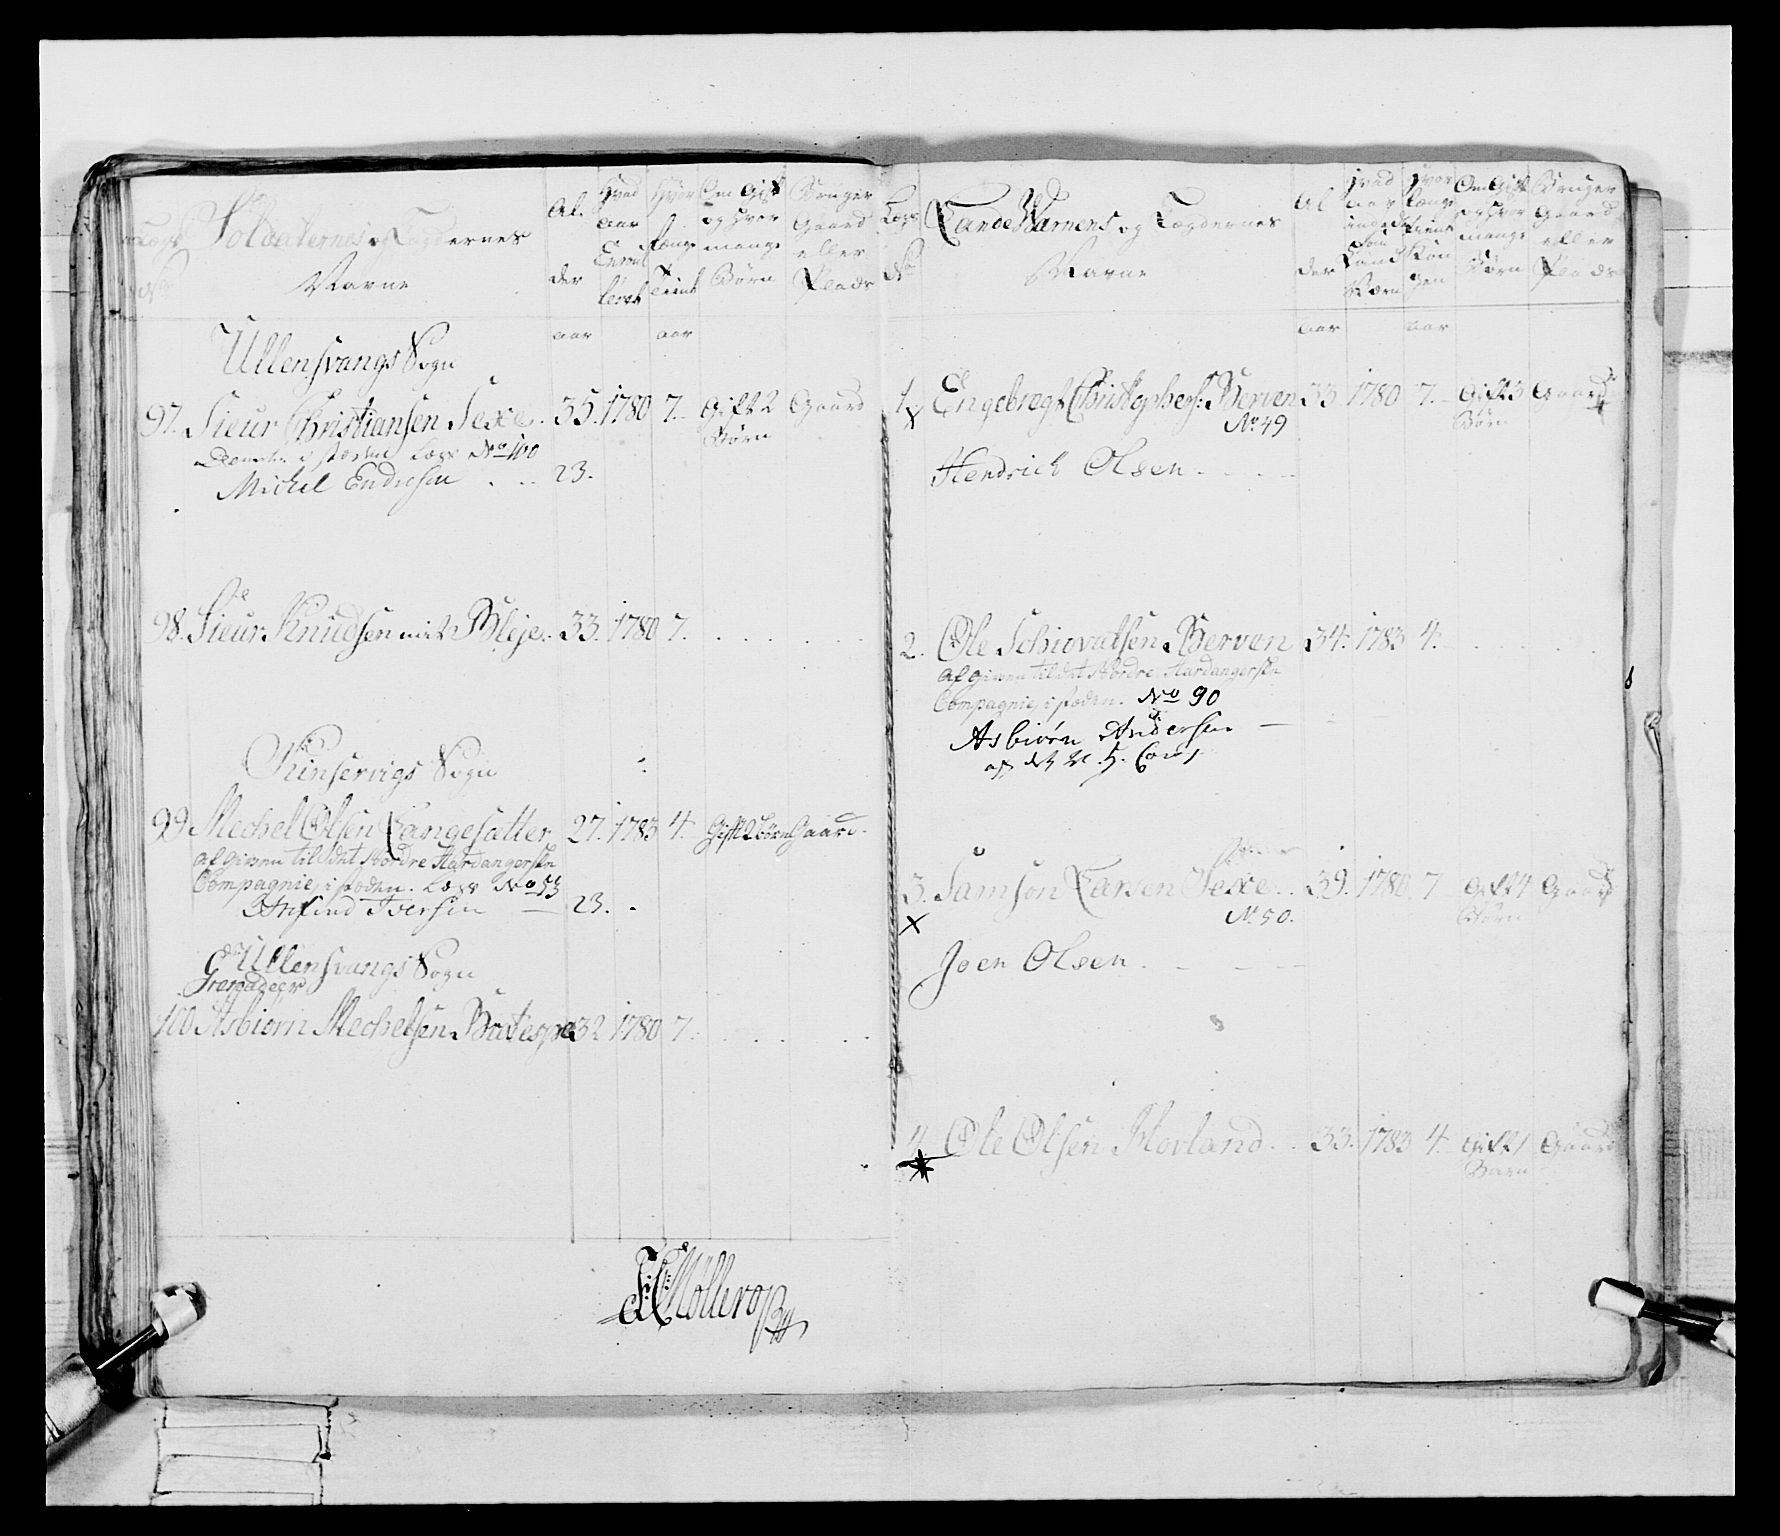 Lægs
No
Soldaternes og Lægdernes
Navne
Al
der
Hvad
aar
Enrul
leret
Hvor
længe
Tient
Om Gift
og hvor
mange
Børn
Bruger
Gaard
eller
Plads
aar
aar
Ullensvangs Sogn
97. Sieur Christiansen Sexe. 35. 1780 7. Gift 2 Gaard
Børn
Læg No 100
Michel Endresen 23.
98. Sieur Knudsen Bleje. 33. 1780 7.
Kinservigs Sogn
99 Mechel Olsen Langesætter 27. 1783 4. Gift 2 børn Gaard.
afgiven til det Nordre Hardangerske
Compagnie, i steden. Læg No 53
Arnfind Iversen 23.
Ullensvangs Sogn
Grenadeer
100 Asbiørn Mechelsen 32 1780 7.
Møllerop
Lægs
No
LandeWærnens og Lægdernes
Navne
Al
der
Hvad
aar
indedet
som
Land
Værn
Hvor
længe
tient
Kon
gen
Om Gift
og hvor
mange
Børn
Bruger
Gaard
eller
Plads
aar
aar
1. Engebregt Christophers: Berven 33 1780 7. Gift 3 Gaard
x No 49 Børn
Hendrich Olsen
2. Ole Schiovatsen Berven 34. 1783 4.
afgiven til det Nordre Hardangerske
Compagnie, i steden. No 90
Asbiørn Andersen
3. Samson Larsen Sexe. 39. 1780 7 Gift 4 Gaard
x No 50. Børn
Joen Olsen
4. Ole Olsen Hovland 33. 1783 4. Gift 1 Gaard
Barn